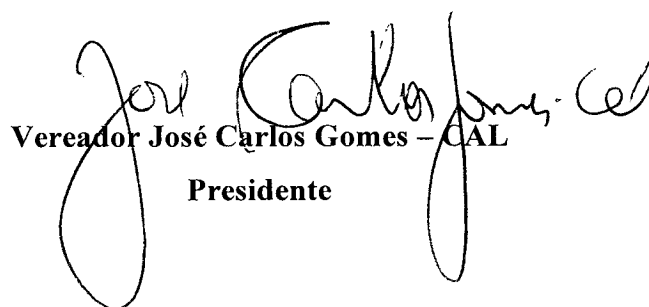 José Carlos Gomes - Cal
Vereador José Carlos Gomes – CAL
Presidente